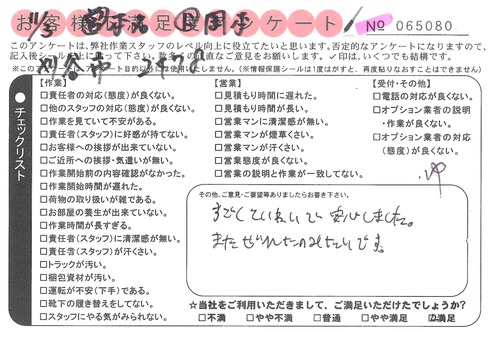 お客様満足度アンケート No 065080
このアンケートは、弊社作業スタッフのレベル向上に役立てたいと思います。否定的なアンケートになりますので、
記入後スタッフに
て下さい。多数の率直なご意見をお願いします。✓印は、いくつでも結構です。
アンケート目的以外には使用いたしません。(※情報保護シールは1度はがすと、再度貼りなおすことはできません)
チェックリスト
【作業】
□責任者の対応(態度)が良くない。
□他のスタッフの対応(態度)が良くない。
□作業を見ていて不安がある。
□責任者(スタッフ)に好感が持てない。
□お客様への挨拶が出来ていない。
□ご近所への挨拶・気遣いが無い。
□作業開始前の内容確認がなかった。
□作業開始時間が遅れた。
□荷物の取り扱いが雑である。
□お部屋の養生が出来ていない。
□作業時間が長すぎる。
□責任者(スタッフ)に清潔感が無い。
□責任者(スタッフ)が汗くさい。
□トラックが汚い。
□梱包資材が汚い。
□運転が不安(下手)である。
□靴下の履き替えをしてない。
□スタッフにやる気がみられない。
【営業】
□見積もり時間に遅れた。
□見積もり時間が長い。
□営業マンに清潔感が無い。
□営業マンが煙草くさい。
□営業マンが汗くさい。
□営業態度が良くない。
□営業の説明と作業が一致してない。
【受付・その他】
□電話の対応が良くない。
□オプション業者の説明
・作業が良くない。
□オプション業者の対応
(態度)が良くない。
その他、ご意見・ご要望等ありましたらお書き下さい。
すごくていねいで安心しました。
またぜひたのみたいです。
☆当社をご利用いただきまして、ご満足いただけたでしょうか?
□不満 □やや不満 □普通 □やや満足 ☑満足